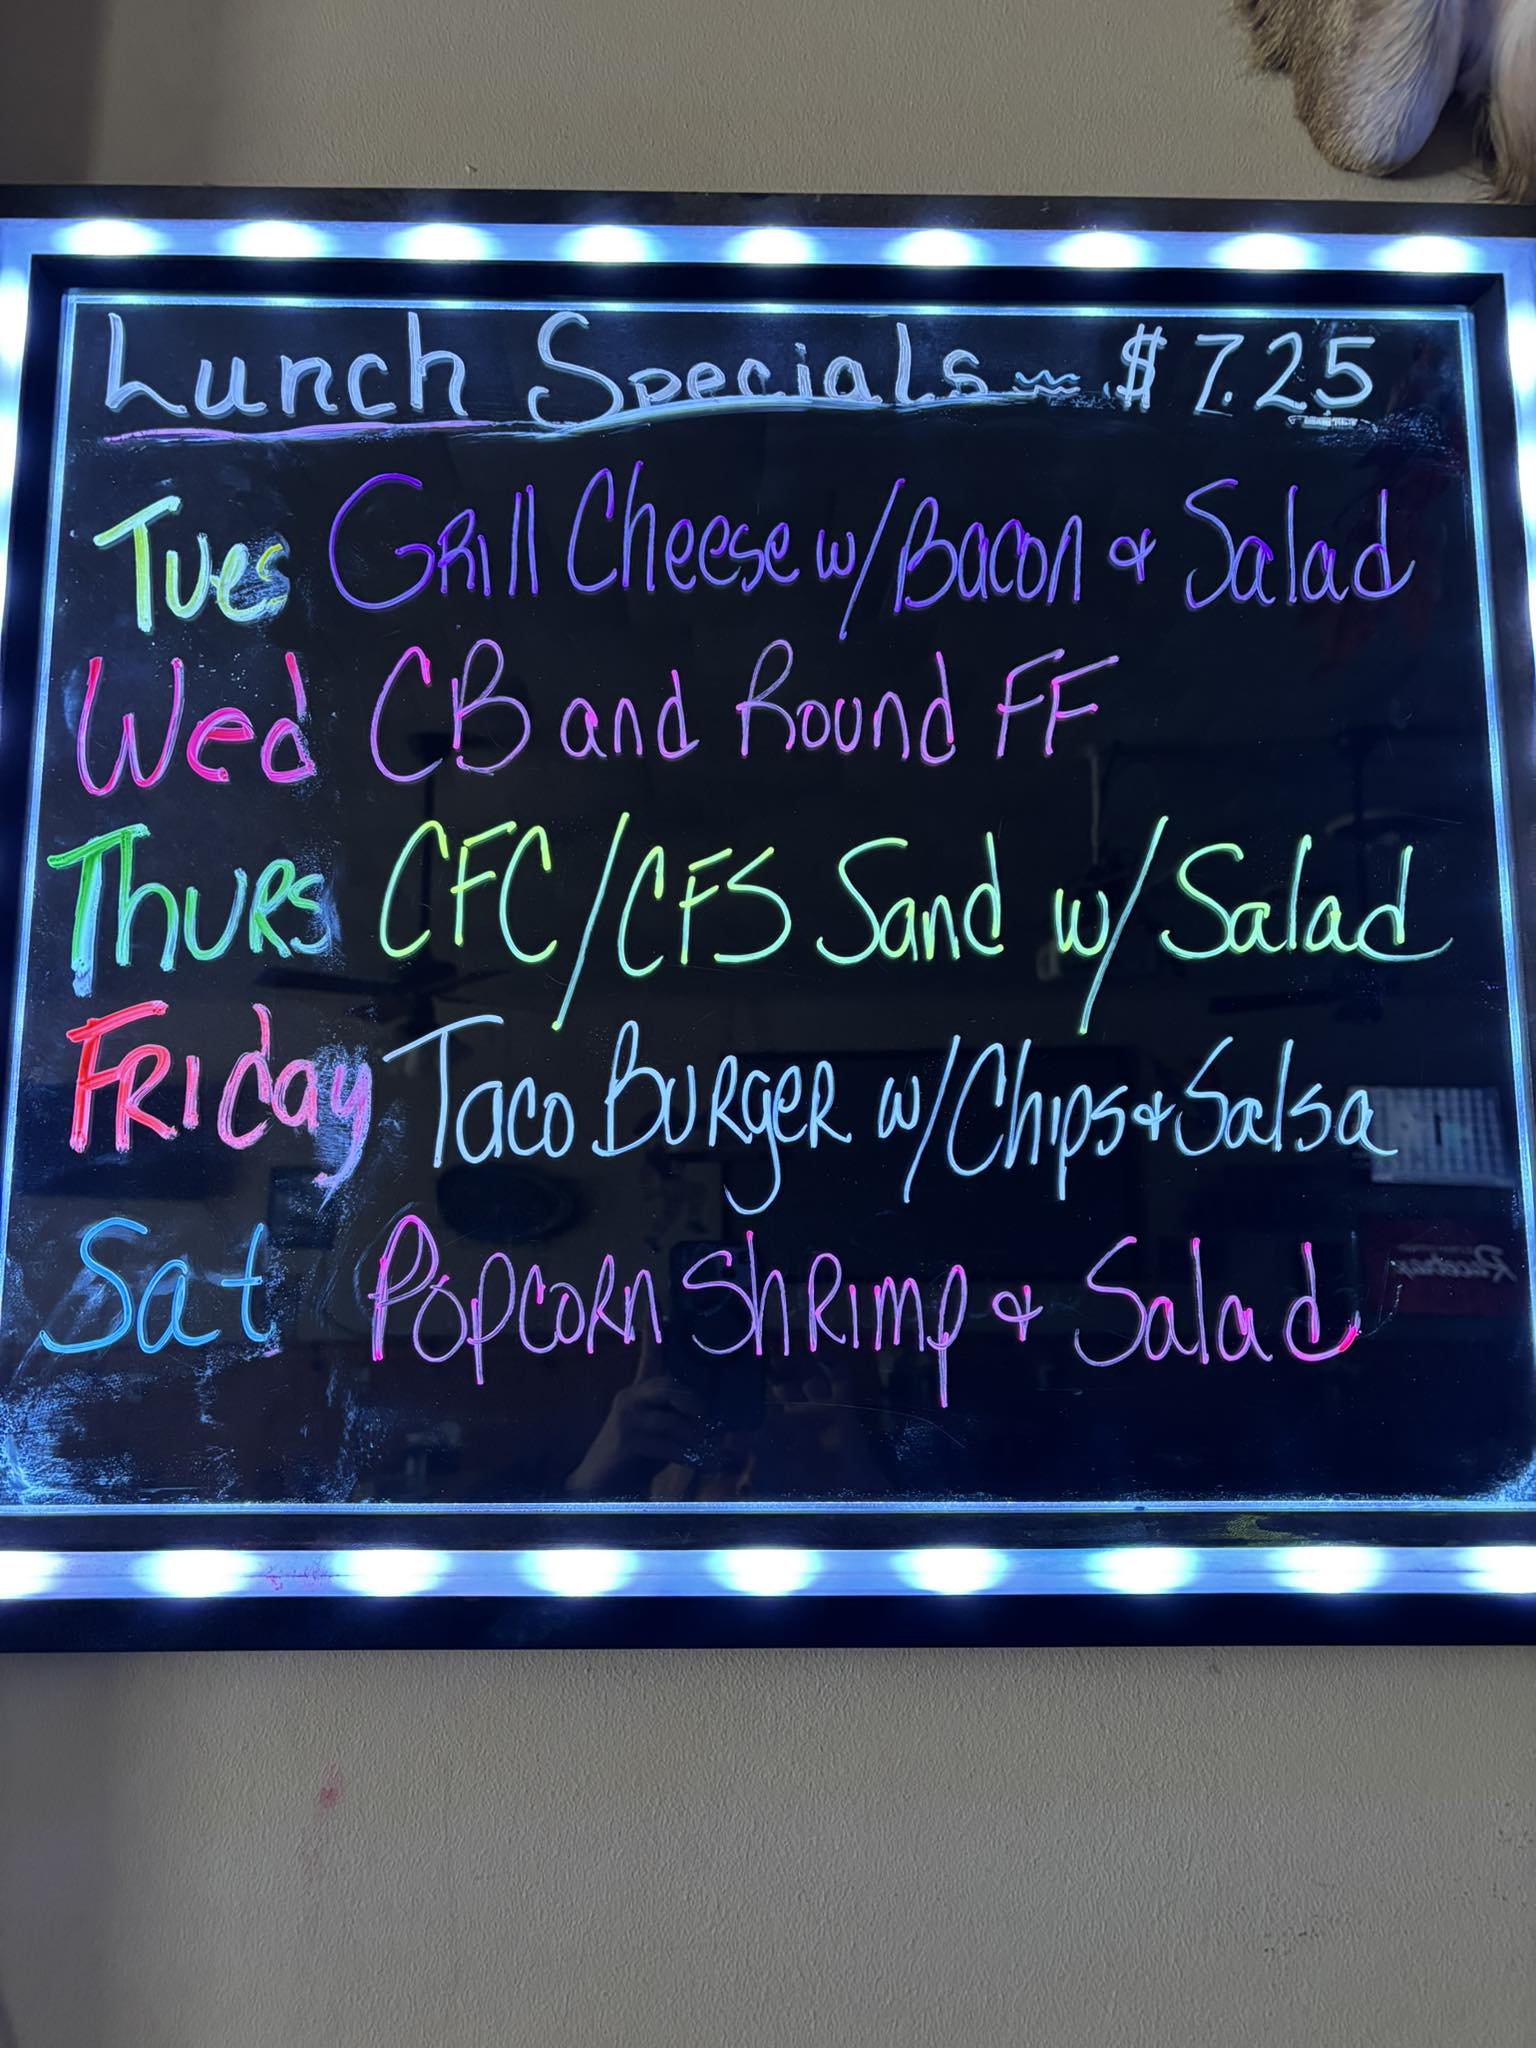 Lunch Specials ~ $7.25
Tues Grill Cheese w/Bacon & Salad
Wed CB and Round FF
Thurs CFC/CFS Sand w/ Salad
Friday Taco Burger w/Chips & Salsa
Sat Popcorn Shrimp & Salad